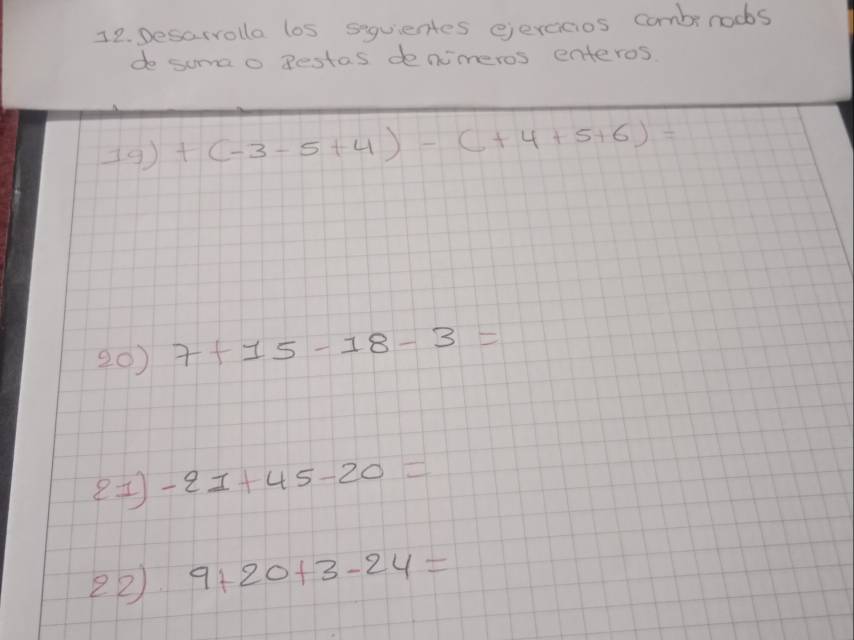 12. Desarrolla los seguientes ejercicios combinados
de suma o Restas de números enteros.
19) + (-3 - 5 + 4) - (+ 4 + 5 + 6) =
20) 7 + 15 - 18 - 3 =
21) - 21 + 45 - 20 =
22) 9 + 20 + 3 - 24 =